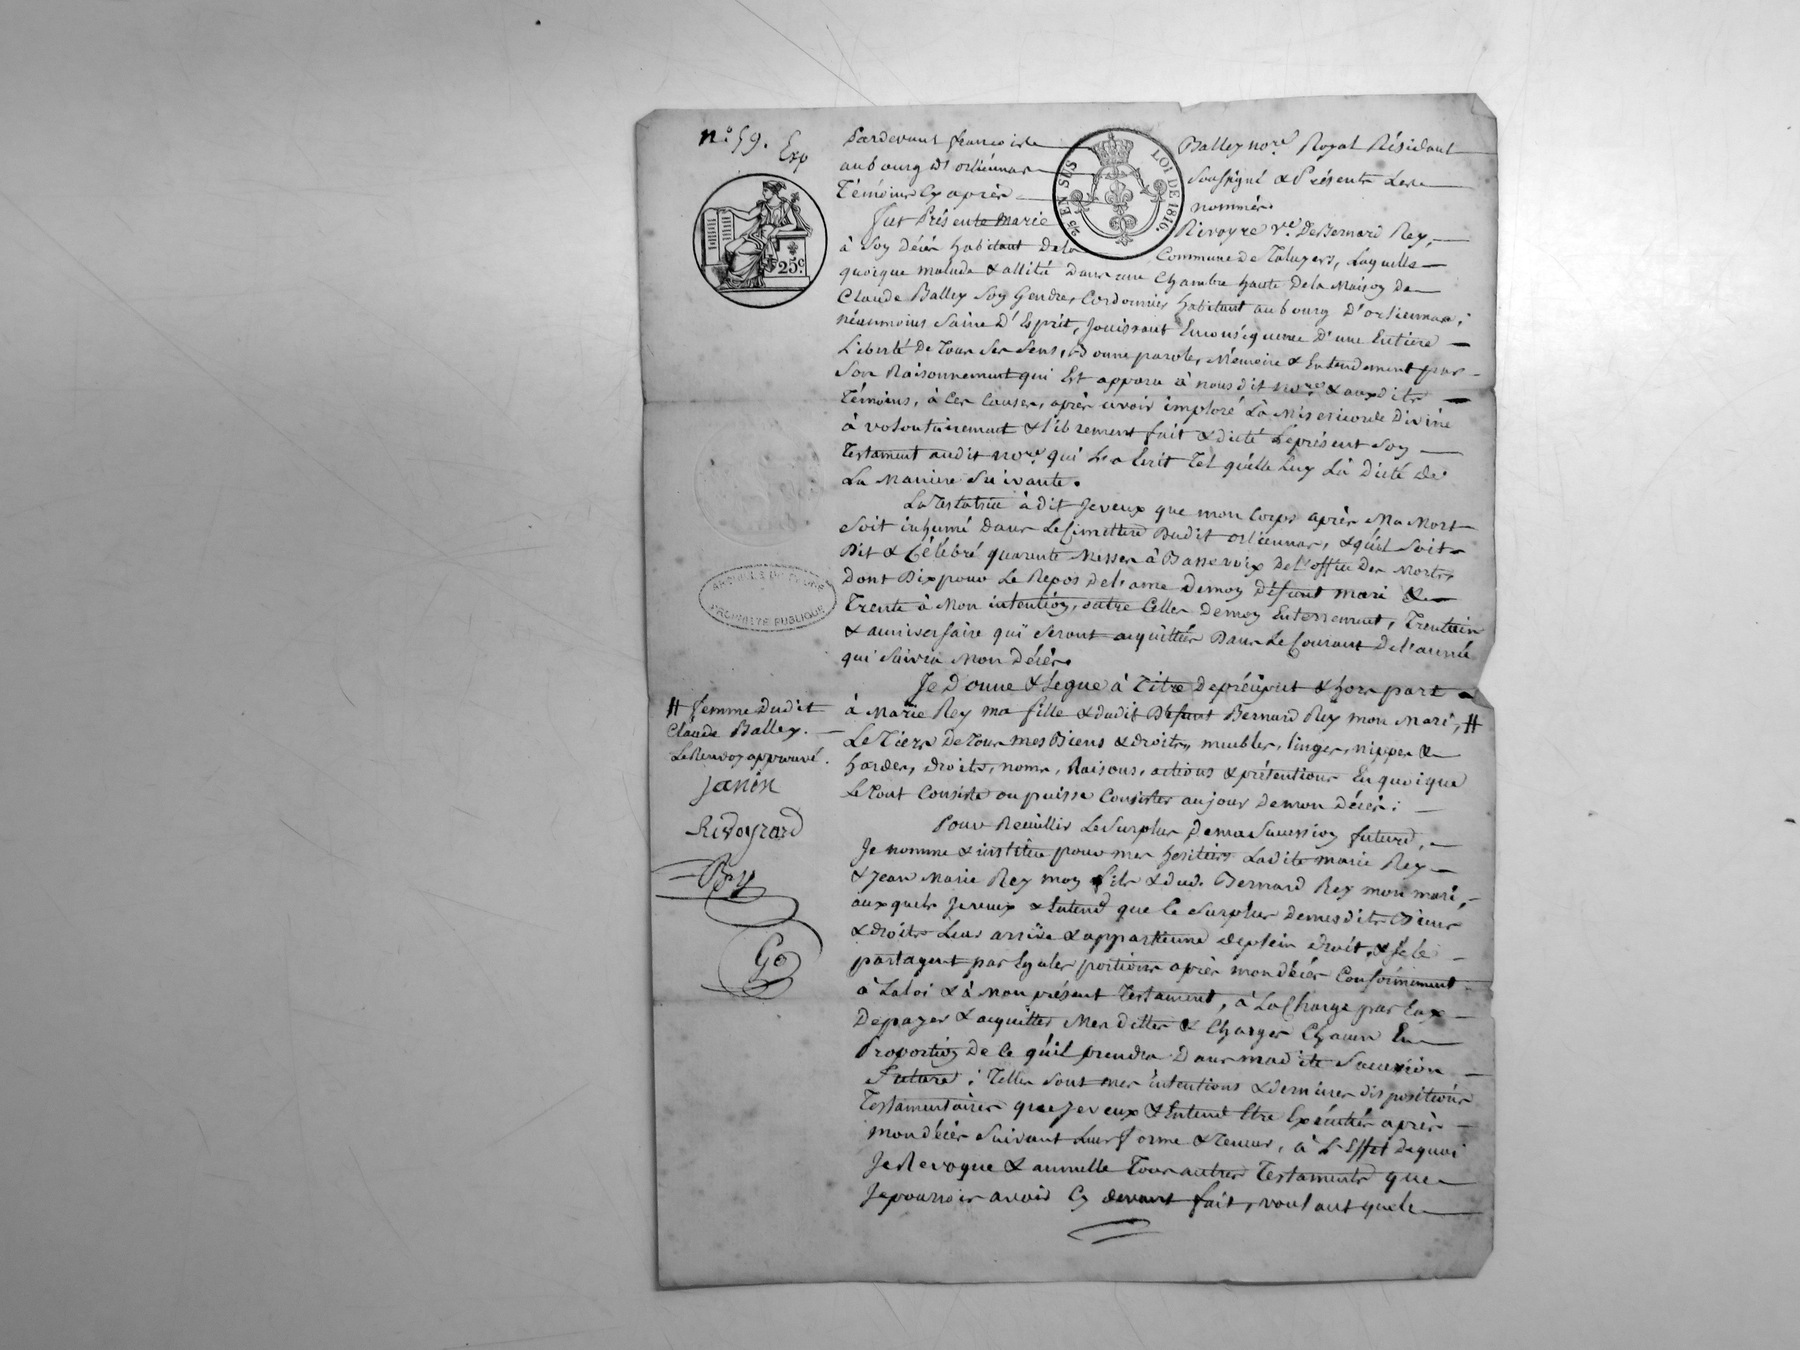 n.° 59. Exp
Pardevant françois Balley no.re Royal Résidant
au bourg d'orliénnas Soussigné & Présents Les
Témoins Cy après nommés
EN SUS
LOI DE 1816.
25c.
Fut Présente Marie Rivoyre v.e De Bernard Rey,
à Soy Décès habitant Dela Commune de Taluyers, Laquelle
quoique malade & allitée Dans une Chambre haute Dela Maison de
Claude Balley Soy Gendre, Cordonnier habitant au bourg D'orliennas;
néanmoins Saine D'Esprit, Jouissant Enconséquence D'une Entière
Liberté De Tous Ses Sens, Bonne parole, Mémoire & Entendement par
Son Raisonnement qui Est apparu à nous dit no.re & auxdits
Témoins, à Ces Causes, après avoir imploré La Misericorde Divine
à volontairement & librement fait & dicté Leprésent Soy
Testament audit no.re qui Le a Ecrit Tel quelle Luy La Dicté De
La Maniere Suivante.
La Testatrice à dit Jeveux que mon Corps après Ma Mort
Soit inhumé dans Le Cimettiere Dudit orliénnas, & qu'il Soit
Dit & Célébré quarante Messes à Basse voix De l'office Des Morts,
Dont Dix pour Le Repos del'ame Demoy défunt mari &
Trente à Mon intention, outre Celles Demoy Enterrement, Trentain
& anniversaire qui Seront acquittés Dans Le Courant De l'année
qui Suivra Mon Décès.
ARCHIVES DU RHONE
PROPRIÉTÉ PUBLIQUE
Je Donne & Legue à Titre De préciput & hors part
à Marie Rey ma fille & dudit Défunt Bernard Rey mon Mari, #
# femme Dudit
Claude Balley.
Le Renvoy approuvé.
Janin
Rivoyrard
Rey
Le Tiers De Tous mes Biens & droits, meubles, linges, nippes &
hardes, droits, noms, Raisons, actions & prétentions En quoique
Le Tout Consiste ou puisse Consister au jour demon Décès;
Pour Recuillir Le Surplus Dema Succession future,
Je nomme & institue pour mes heritiers Ladite Marie Rey
& Jean Marie Rey moy fils & dud. Bernard Rey mon mari,
auxquels Jeveux & Entend que le Surplus demesdits Biens
& droits Leur arrive & appartienne deplein droit, & se le
partagent par Egales portions après mon décès Conformément
à Laloi & à Mon présent Testament, à La Charge par Eux
Depayer & acquitter Mes dettes & Charges Chacun En
Proportion De ce qu'il prendra Dans madite Succession
Future; Telles Sont mes intentions & dernieres dispositions
Testamentaires que Jeveux & Entend Etre Exécutées après
mon décès Suivant Leur forme & Teneur, à L'Effet Dequoi
Je Revoque & annulle Tous autres Testaments que
Jepourrois avoir Cy devant fait, voulant que le